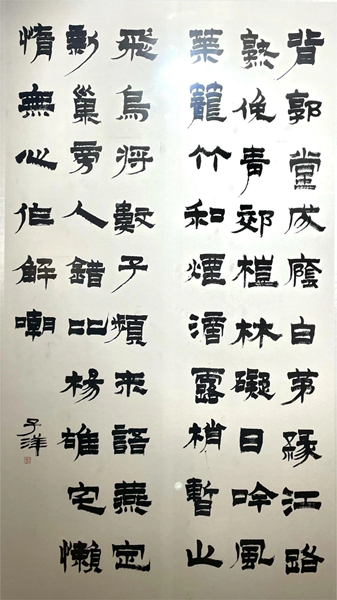 背郭堂成廕白茅緣江路
熟俛青郊榿林礙日吟風
葉籠竹和煙滴露梢暫止
飛烏將數子頻來語燕定
新巢旁人錯比楊雄宅懶
惰無心作解嘲
子洋